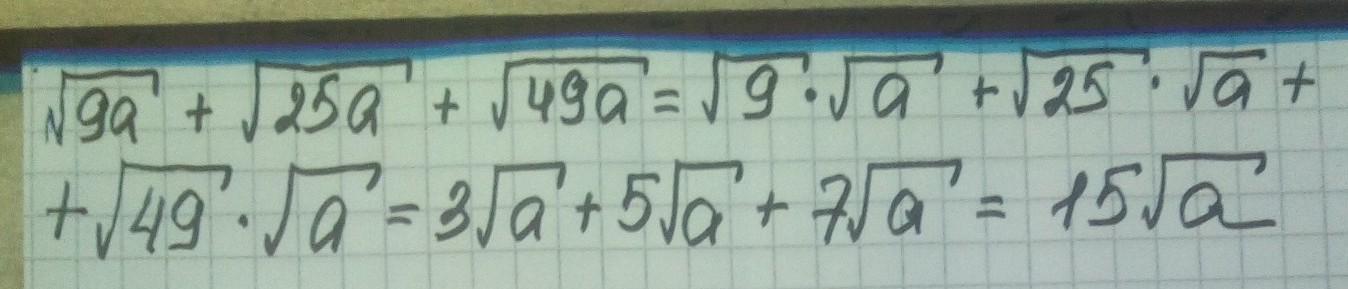 √9a + √25a + √49a = √9 · √a + √25 · √a +
+ √49 · √a = 3√a + 5√a + 7√a = 15√a